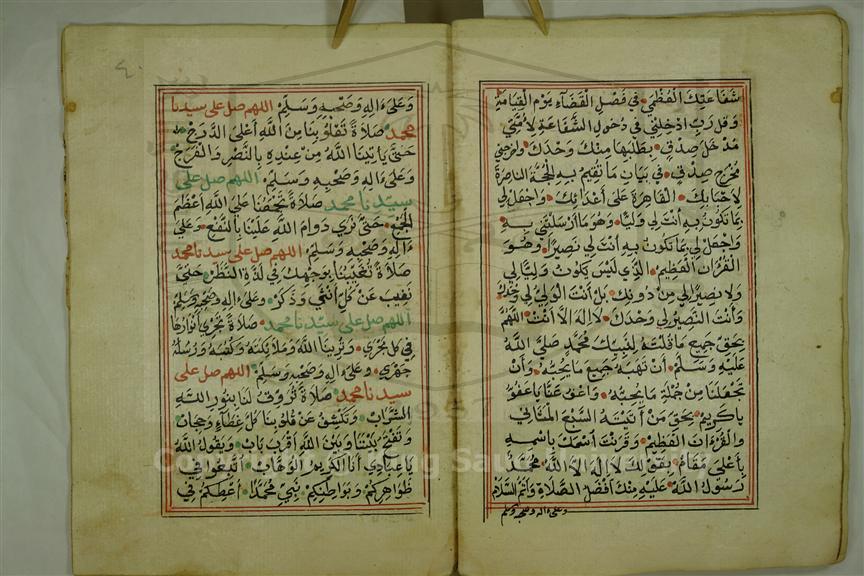 شفاعتك العظمى في فصل القضاء يوم القيامة
وقل رب ادخلني في دخول الشفاعة لأمتي
مدخل صدق بطلبها منك وحدك واخرجني
مخرج صدق في بيان ما تقيم به الحجة الناصرة
لاحبابك القاهرة على أعدائك واجعل لي
بما تكون به أنت لي وليا وهو ما أرسلتني به
واجعل لي بما تكون به أنت لي نصيرا وهو
القرءان العظيم الذي ليس يكون وليا لي
ولا نصيرا لي من دونك بل أنت الولي لي وحدك
وأنت النصير لي وحدك لا اله الا أنت اللهم
بحق جميع ما قلته لنبيك محمد صلى الله
عليه وسلم أن تهبه جميع ما يحبه وأن
تجعلنا من جملة ما يحبه واعف عنا يا عفو
يا كريم بحق من أتيته السبع المثاني
والقرءان العظيم وقرنت اسمك باسمه
بأعلى مقام بقولك لا اله الا الله محمد
رسول الله عليه منك أفضل الصلاة وأتم السلام
وعلى اله وصحبه وسلم
٤٠
وعلى ءاله وصحبه وسلم اللهم صل على سيدنا
محمد صلاة بنا من الله أعلى الدرج
حتى يأتينا الله من عنده بالنصر والفرج
وعلى ءاله وصحبه وسلم اللهم صل على
سيدنا محمد صلاة تجمعنا على الله أعظم
الجمع حتى نرى دوام الله علينا بالنفع وعلى
ءاله وصحبه وسلم اللهم صل على سيدنا محمد
صلاة بوجهك في لذة النظر حتى
نغيب عن كل أنثى وذكر وعلى ءاله وصحبه وسلم
اللهم صل على سيدنا محمد صلاة تجري أنوارها
في كل مجرى وترينا الله وملائكته وكتبه ورسله
جهرى وعلى ءاله وصحبه وسلم اللهم صل على
سيدنا محمد صلاة تروق لنا بنور الله
الشراب وتكشف عن قلوبنا كل غطاء وحجاب
وتفتح بيننا وبين الله أقرب باب ويقول الله
يا عبادي أنا الكريم الوهاب اتبعوا في
ظواهركم وبواطنكم نبيي محمدا أعطكم في
Copyright © King Saud University
1957